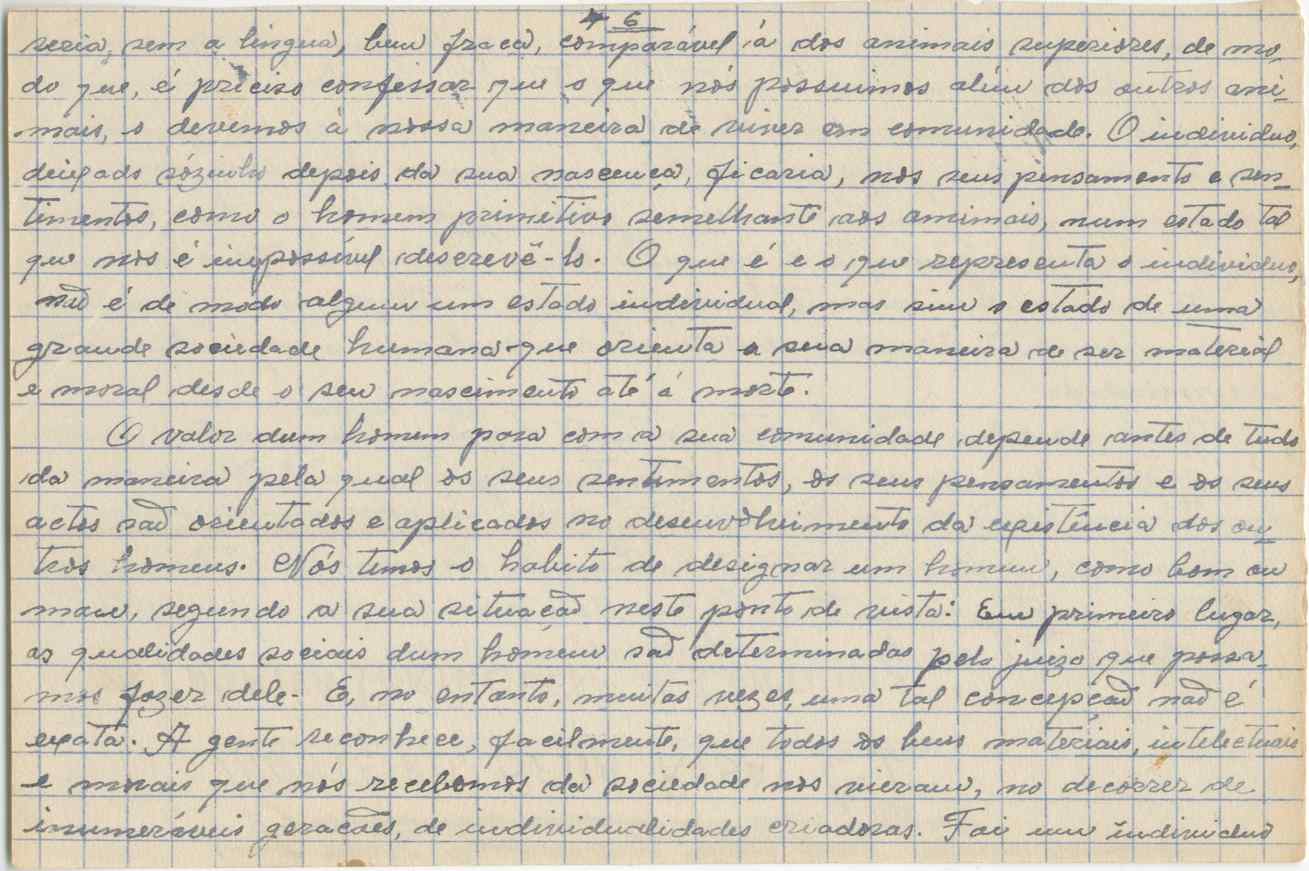 6
seria, sem a lingua, bem fraca, comparável á dos animais superiores, de mo-
do que, é preciso confessar que o que nós possuimos além dos outros ani-
mais, o devemos à nossa maneira de viver em comunidade. O individuo,
deixado sózinho depois da sua nascença, ficaria, nos seus pensamento e sen-
timentos, como o homem primitivo semelhante aos animais, num estado tal
que nos é impossível descrevê-lo. O que é e o que representa o individuo,
não é de modo algum um estado individual, mas sim o estado de uma
grande sociedade humana que orienta a sua maneira de ser material
e moral desde o seu nascimento até á morte.
O valor dum homem para com a sua comunidade depende antes de tudo
da maneira pela qual os seus sentimentos, os seus pensamentos e os seus
actos são orientados e aplicados no desenvolvimento da existência dos ou-
tros homens. Nós temos o habito de designar um homem, como bom ou
mau, segundo a sua situação neste ponto de vista: Em primeiro lugar,
as qualidades sociais dum homem são determinadas pelo juizo que possa-
mos fazer dele. E, no entanto, muitas vezes, uma tal concepção não é
exata. A gente reconhece, facilmente, que todos os bens matériais, intelectuais
e morais que nós recebemos da sociedade nos vieram, no decorrer de
inumeráveis gerações, de individualidades criadoras. Foi um individuo